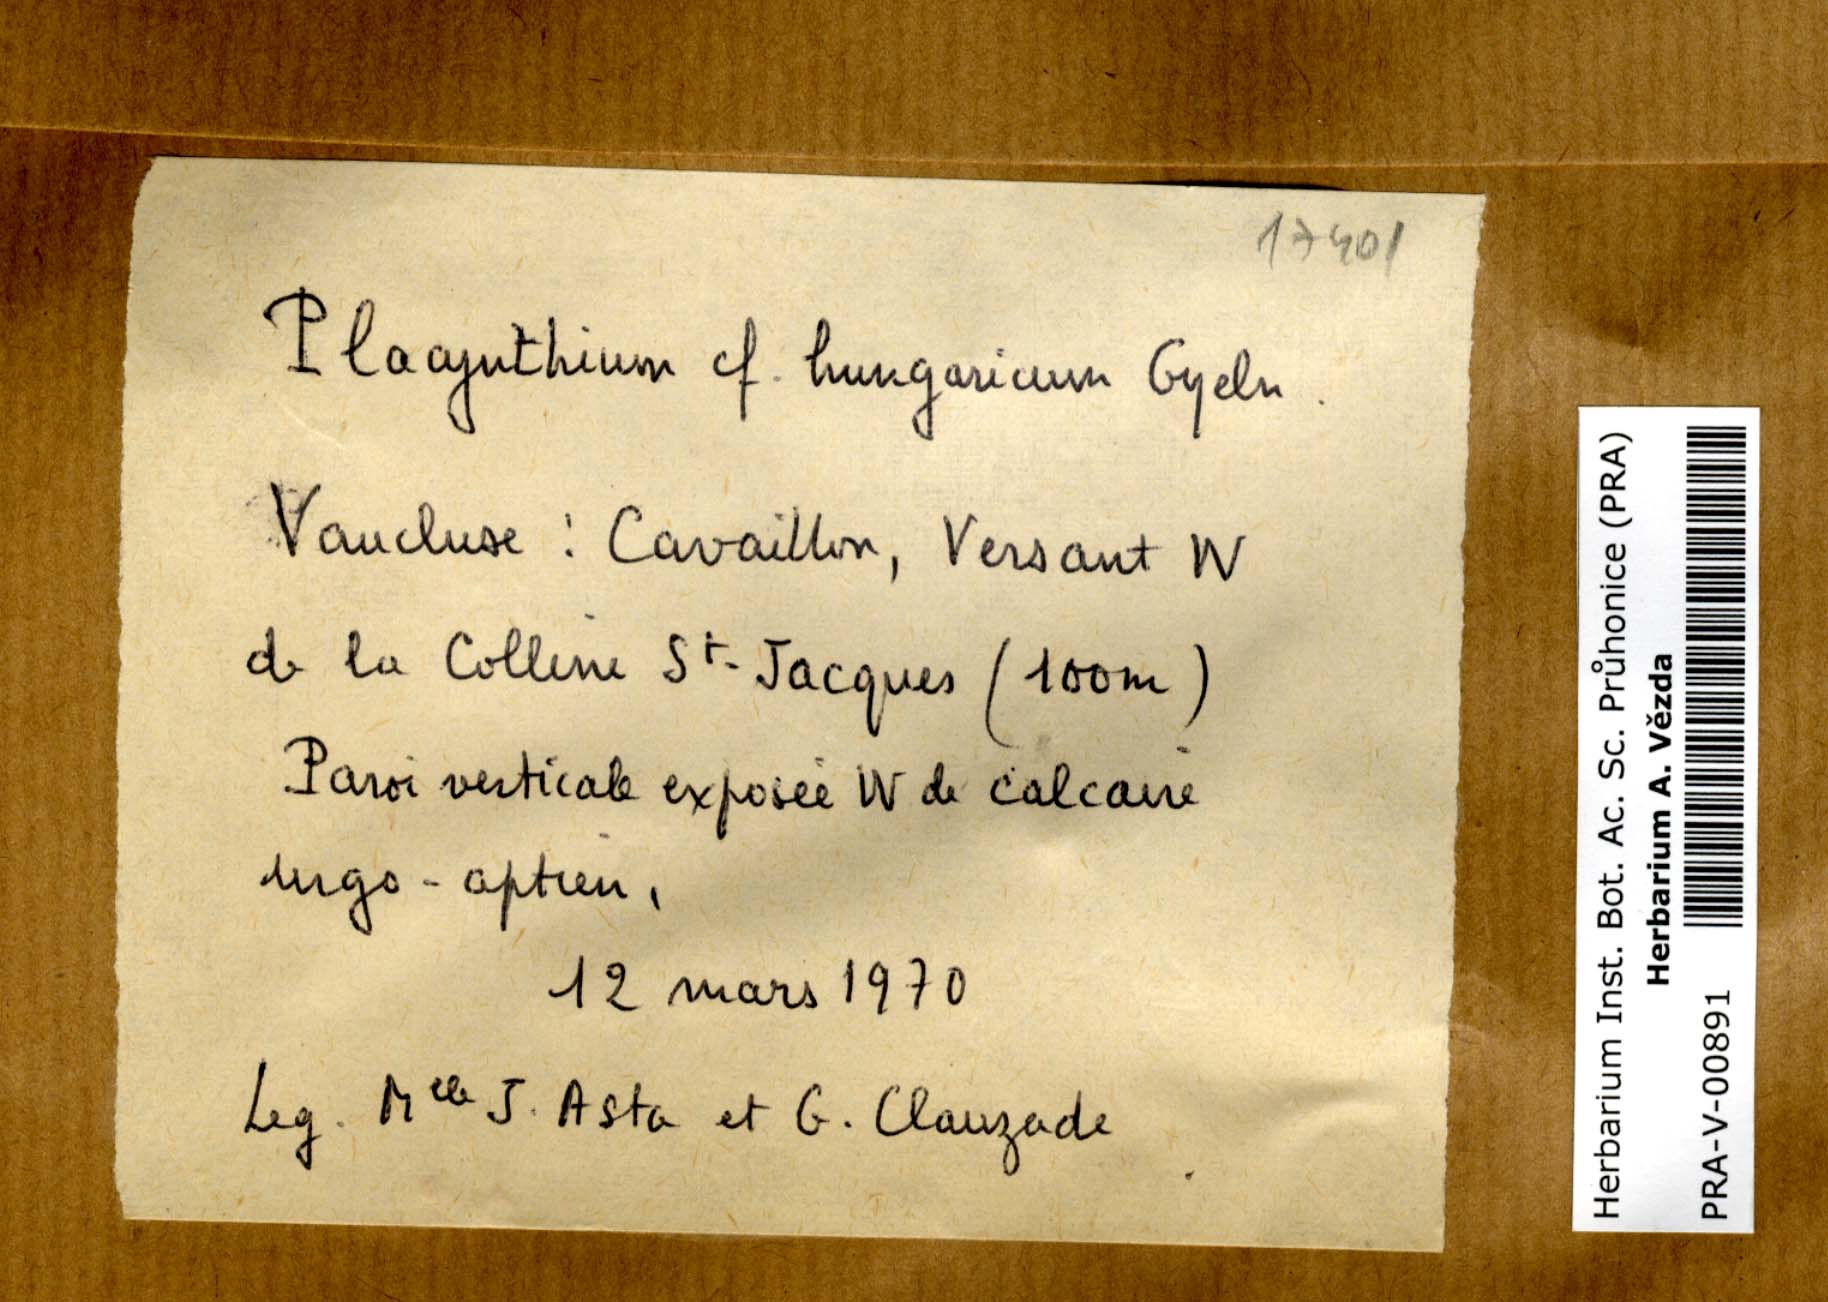 17401
Placynthium cf. hungaricum Gyeln.
Vaucluse : Cavaillon, Versant W
de la Colline St-Jacques (100m)
Paroi verticale exposée W de calcaire
urgo-aptien,
12 mars 1970
Leg. Mlle J. Asta et G. Clauzade
Herbarium Inst. Bot. Ac. Sc. Průhonice (PRA)
Herbarium A. Vězda
PRA-V-00891